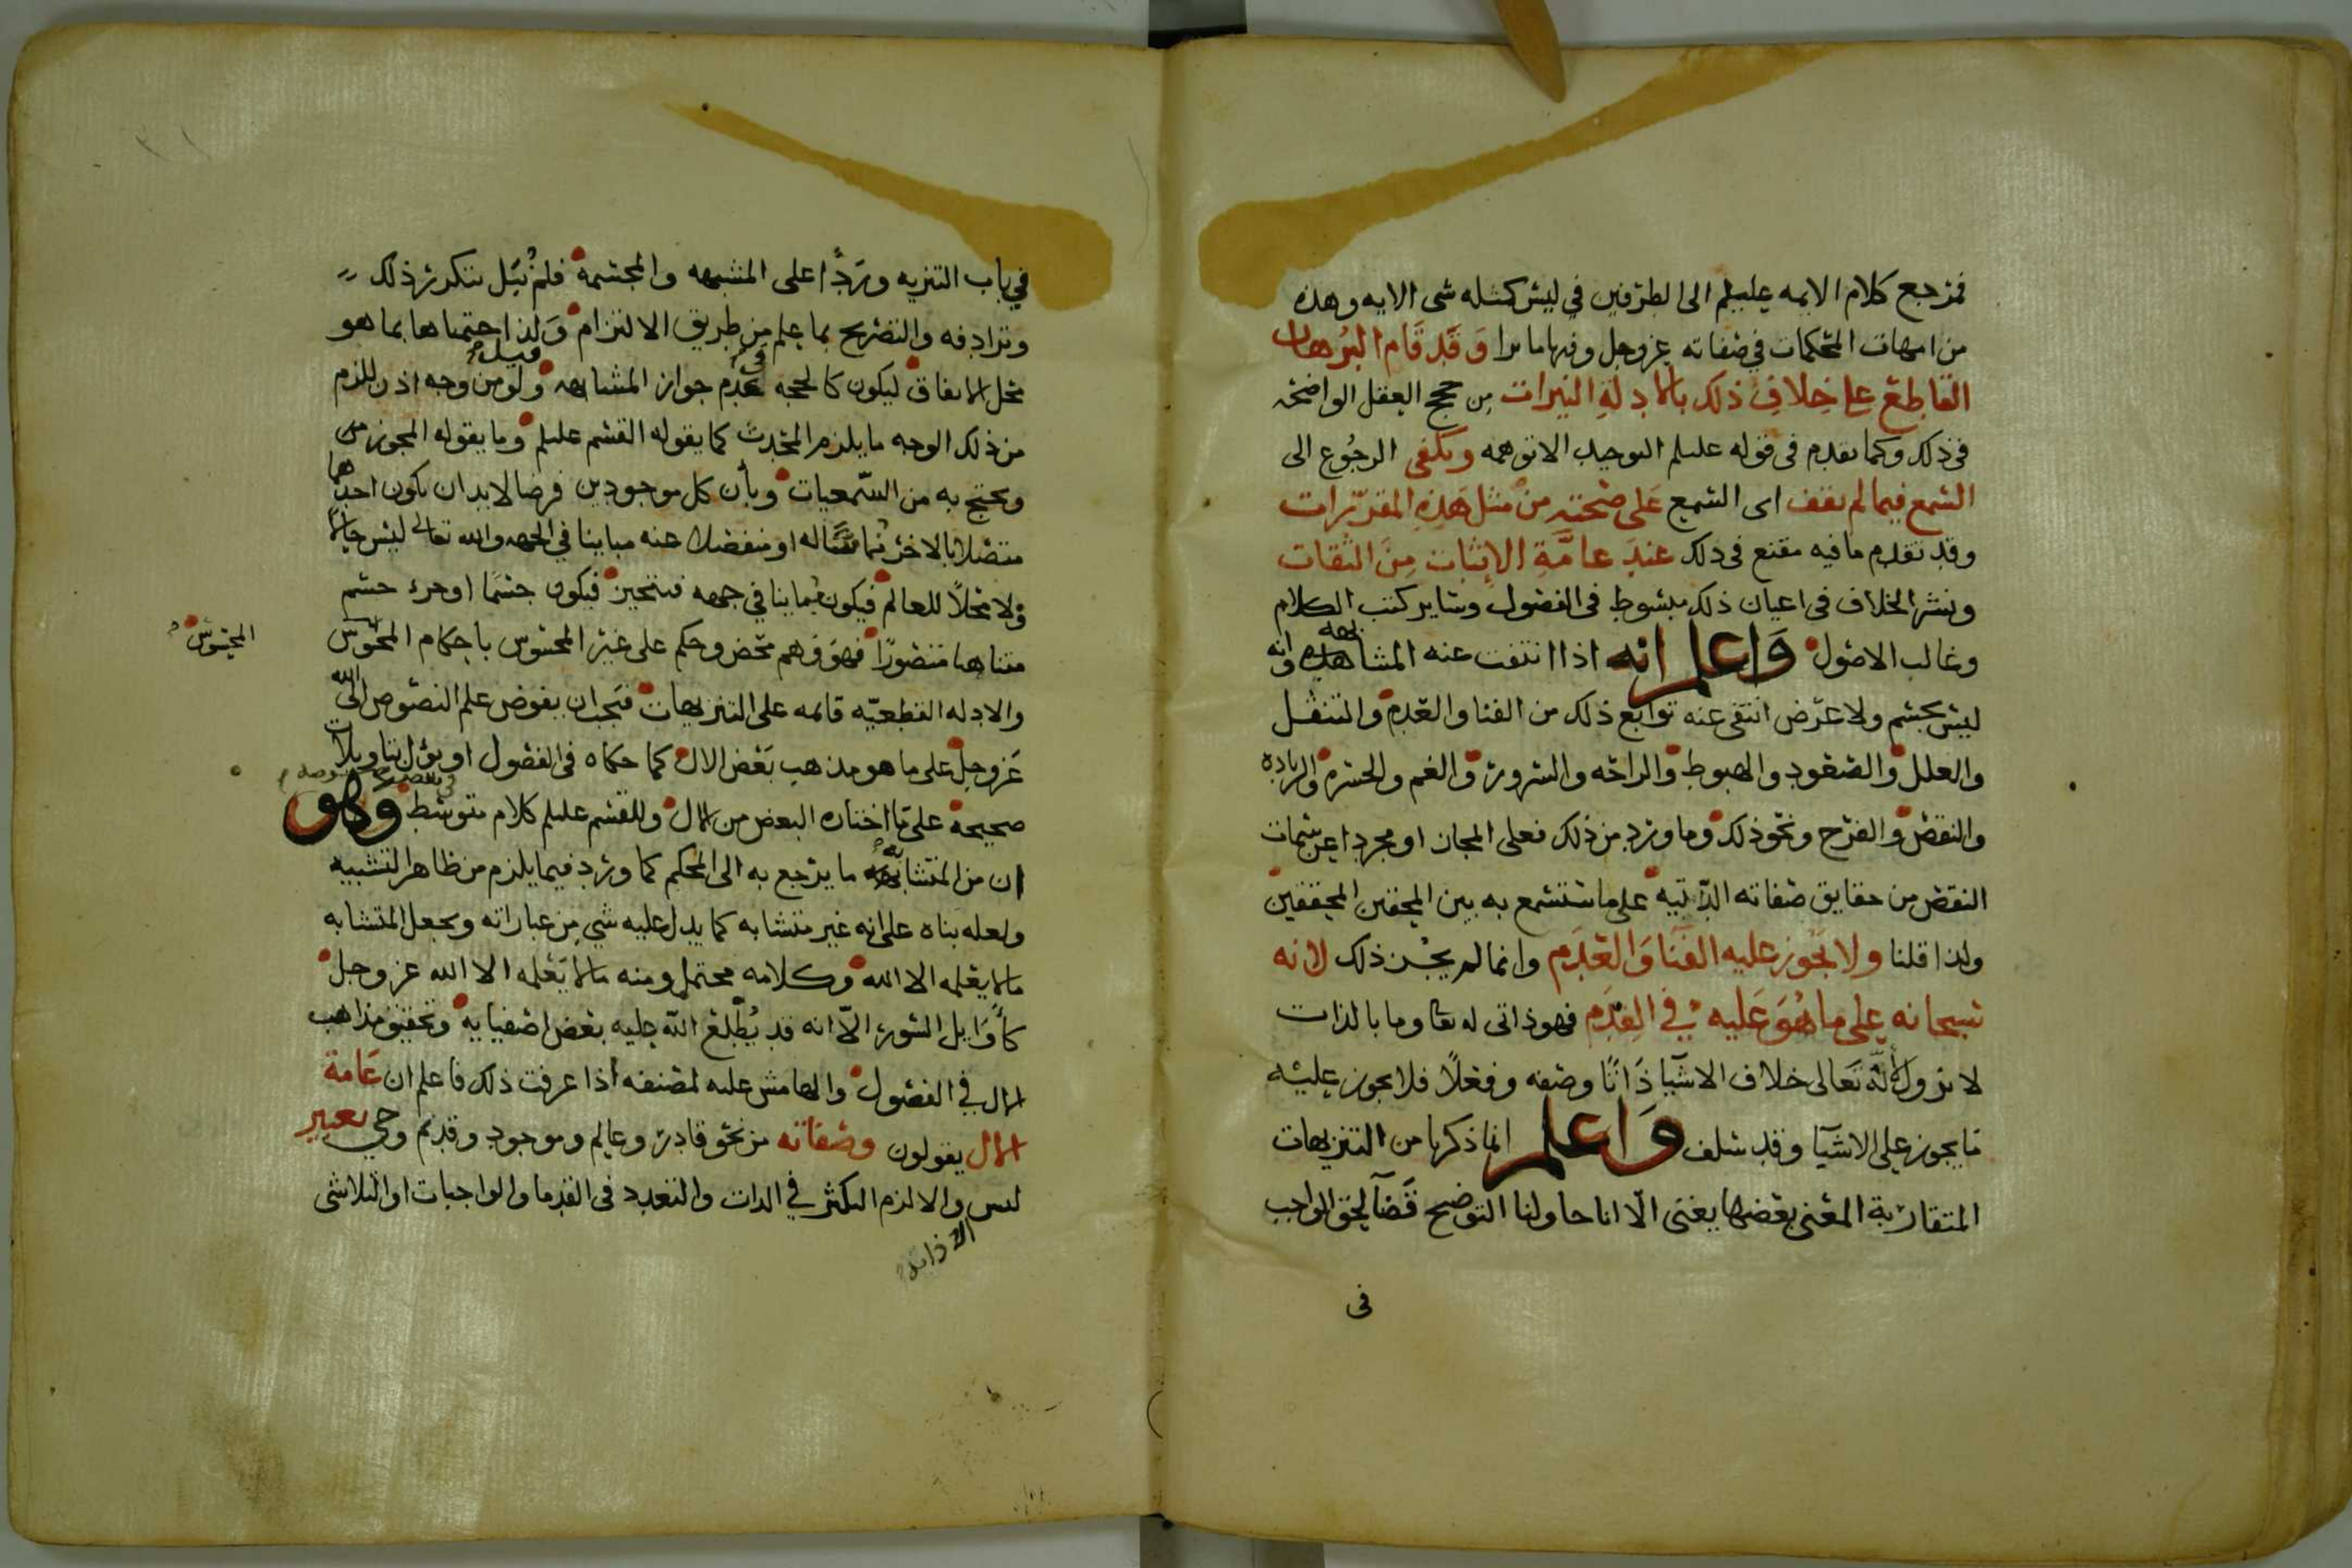 فمرجع كلام الايمه عليهم الى الطرفين في ليس كمثله شى الايه وهذه
من امهات المحكمات في صفاته عز وجل وفيها ما ترا وَقَد قَام البُرهان
القاطِع على خِلافِ ذلك بالادِلةِ النيرات مِن حجج العقل الواضحه
في ذلك وكما تقدم في قوله عليلم التوحيد الا تتوهمه ويكفي الرجُوع الى
السّمع فيما لم يقف اى السمع عَلى صحته مِن مثل هَذِه المقرّرات
وقد تقدم ما فيه مقنع في ذلك عندَ عامَّةِ الاثبات مِنَ الثقات
ونشر الخلاف في اعيان ذلك مبسُوط في الفصُول وساير كتب الكلام
وغالب الاصُول وَاعلم انه اذا انتفت عنه المشابهه وانه
ليس بجسم ولا عَرَض انتفى عنه توابع ذلك من الفنا والعَدم والتنقل
والعلل والصّعُود والهبوط والراحَه والسرور والغم والحسره والزيادة
والنقص والفرح ونحو ذلك وما ورد من ذلك فعلى المجاز او مجرد اعن سمات
النقص من حقايق صفاته الذّاتيه على ما ستسمع به بين المحقين المحققين
ولذا قلنا ولا يَجُوز عليه الفَنَا وَالعَدَم وانما لم يجُز ذلك لانه
سُبحانه على ما هُوَ عَليه في القِدَم فهو ذاتى له تعا وما بالذات
لا يزول لانه تَعَالى خلاف الاشيَا ذَاتًا وصفه وفعْلاً فلا يجوز عليْه
مَا يجوز على الاشيَا وقد سَلف وَاعلم انما ذكرنا من التنزيهات
المتقارِبة المعْنى بعْضها يغنى الّا انا حاولنا التوضيح قضَآ لحق الواجب
في
في باب التنزيه ورَدًّا على المشبهه والمجسّمة فلمْ نُبَل بتكرّر ذلك
وترادِفه والتصْريح بما علم من طريق الالتزام وَلذا ختمناها بما هو
محل الاتفاق ليكون كالحجه في عدَم جواز المشابهه قيل ولو من وجه اذ يلزم
من ذلك الوجه ما يلزم المحدَث كما يقوله القسم عليلم وما يقوله المجوز من
ويحتج به من السّمعيات وبأن كل موجودين فرضا لا بد ان يكون احدهما
متصلا بالاخر مُماسًّا له او منفصلا عنه مباينا في الجهه والله تعالى ليس حالا
ولا محَلاً للعالم فيكون مُباينا في جهه فيتحيز فيكون جسمًا او جزء جسم
متناهيا متصورًا فهوَ وَهم محض وحكم على غير المحسُوس باحكام المحسوس
المحسُوس
والادله القطعيّه قائمه على التنزيهات فيَجب ان يفوض علم النصُوص الى الله
عَز وجلّ على ما هو مذهب بَعْض الال كما حكاه في الفصُول او يؤول بتاويلات
صحيحة على مَا اختاره البعض من الال وللقسم عليلم كلام متوسّط وَهو
ان من المتشابه ما يرجع به الى المحكم كما ورَد فيما يلزم من ظاهر التشبيه
ولعله بناه على انه غير متشابه كما يدل عليه شي مِن عباراته ويجعل المتشابه
مالا يعْلمه الا الله وكلامه محتمل ومنه مالا يَعْلمه الا الله عز وجلّ
كأوَايل السُّور الّا انه قد يُطْلع اللّه عليه بعْض اصفيايه وتحقيق مذاهب
الال في الفصُول والهامش عليه لمصنفه اذا عرفت ذلك فاعلم ان عَامة
الال يقولون وصفاته من نحو قادر وعالم وموجود وقديم وحي تعبير
ليس والا لزم التكثر في الذات والتعدد في القدما والواجبات او التلاشى